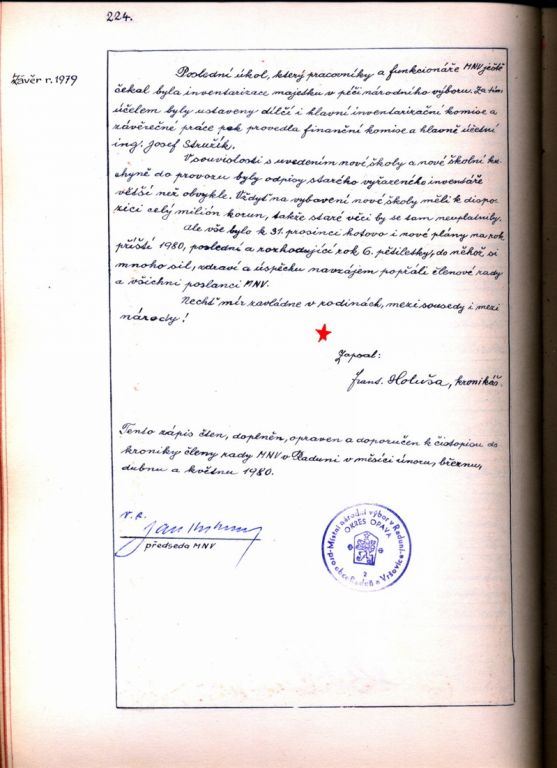 224.
Závěr r. 1979
Poslední úkol, který pracovníky a funkcionáře MNV ještě
čekal byla inventarizace majetku v péči národního výboru. Za tím
účelem byly ustaveny dílčí i hlavní inventarizační komise a
závěrečné práce pak provedla finanční komise a hlavně účetní
ing. Josef Stružík.
V souvislosti s uvedením nové školy a nové školní ku-
chyně do provozu byly odpisy starého vyřazeného inventáře
větší než obvykle. Vždyť na vybavení nové školy měli k dispo-
zici celý milión korun, takže staré věci by se tam neuplatnily.
Ale vše bylo k 31. prosinci hotovo i nové plány na rok
příští 1980, poslední a rozhodující rok 6. pětiletky, do něhož si
mnoho sil, zdraví a úspěchu navzájem popřáli členové rady
a všichni poslanci MNV.
Nechť mír zavládne v rodinách, mezi sousedy i mezi
národy!
Zapsal:
Frant. Holuša, kronikář.
Tento zápis čten, doplněn, opraven a doporučen k čistopisu do
kroniky členy rady MNV v Raduni v měsíci únoru, březnu,
dubnu a květnu 1980.
v. r.
Jan
předseda MNV
Místní národní výbor v Raduni
pro obce Raduň a Vršovice
OKRES OPAVA
2